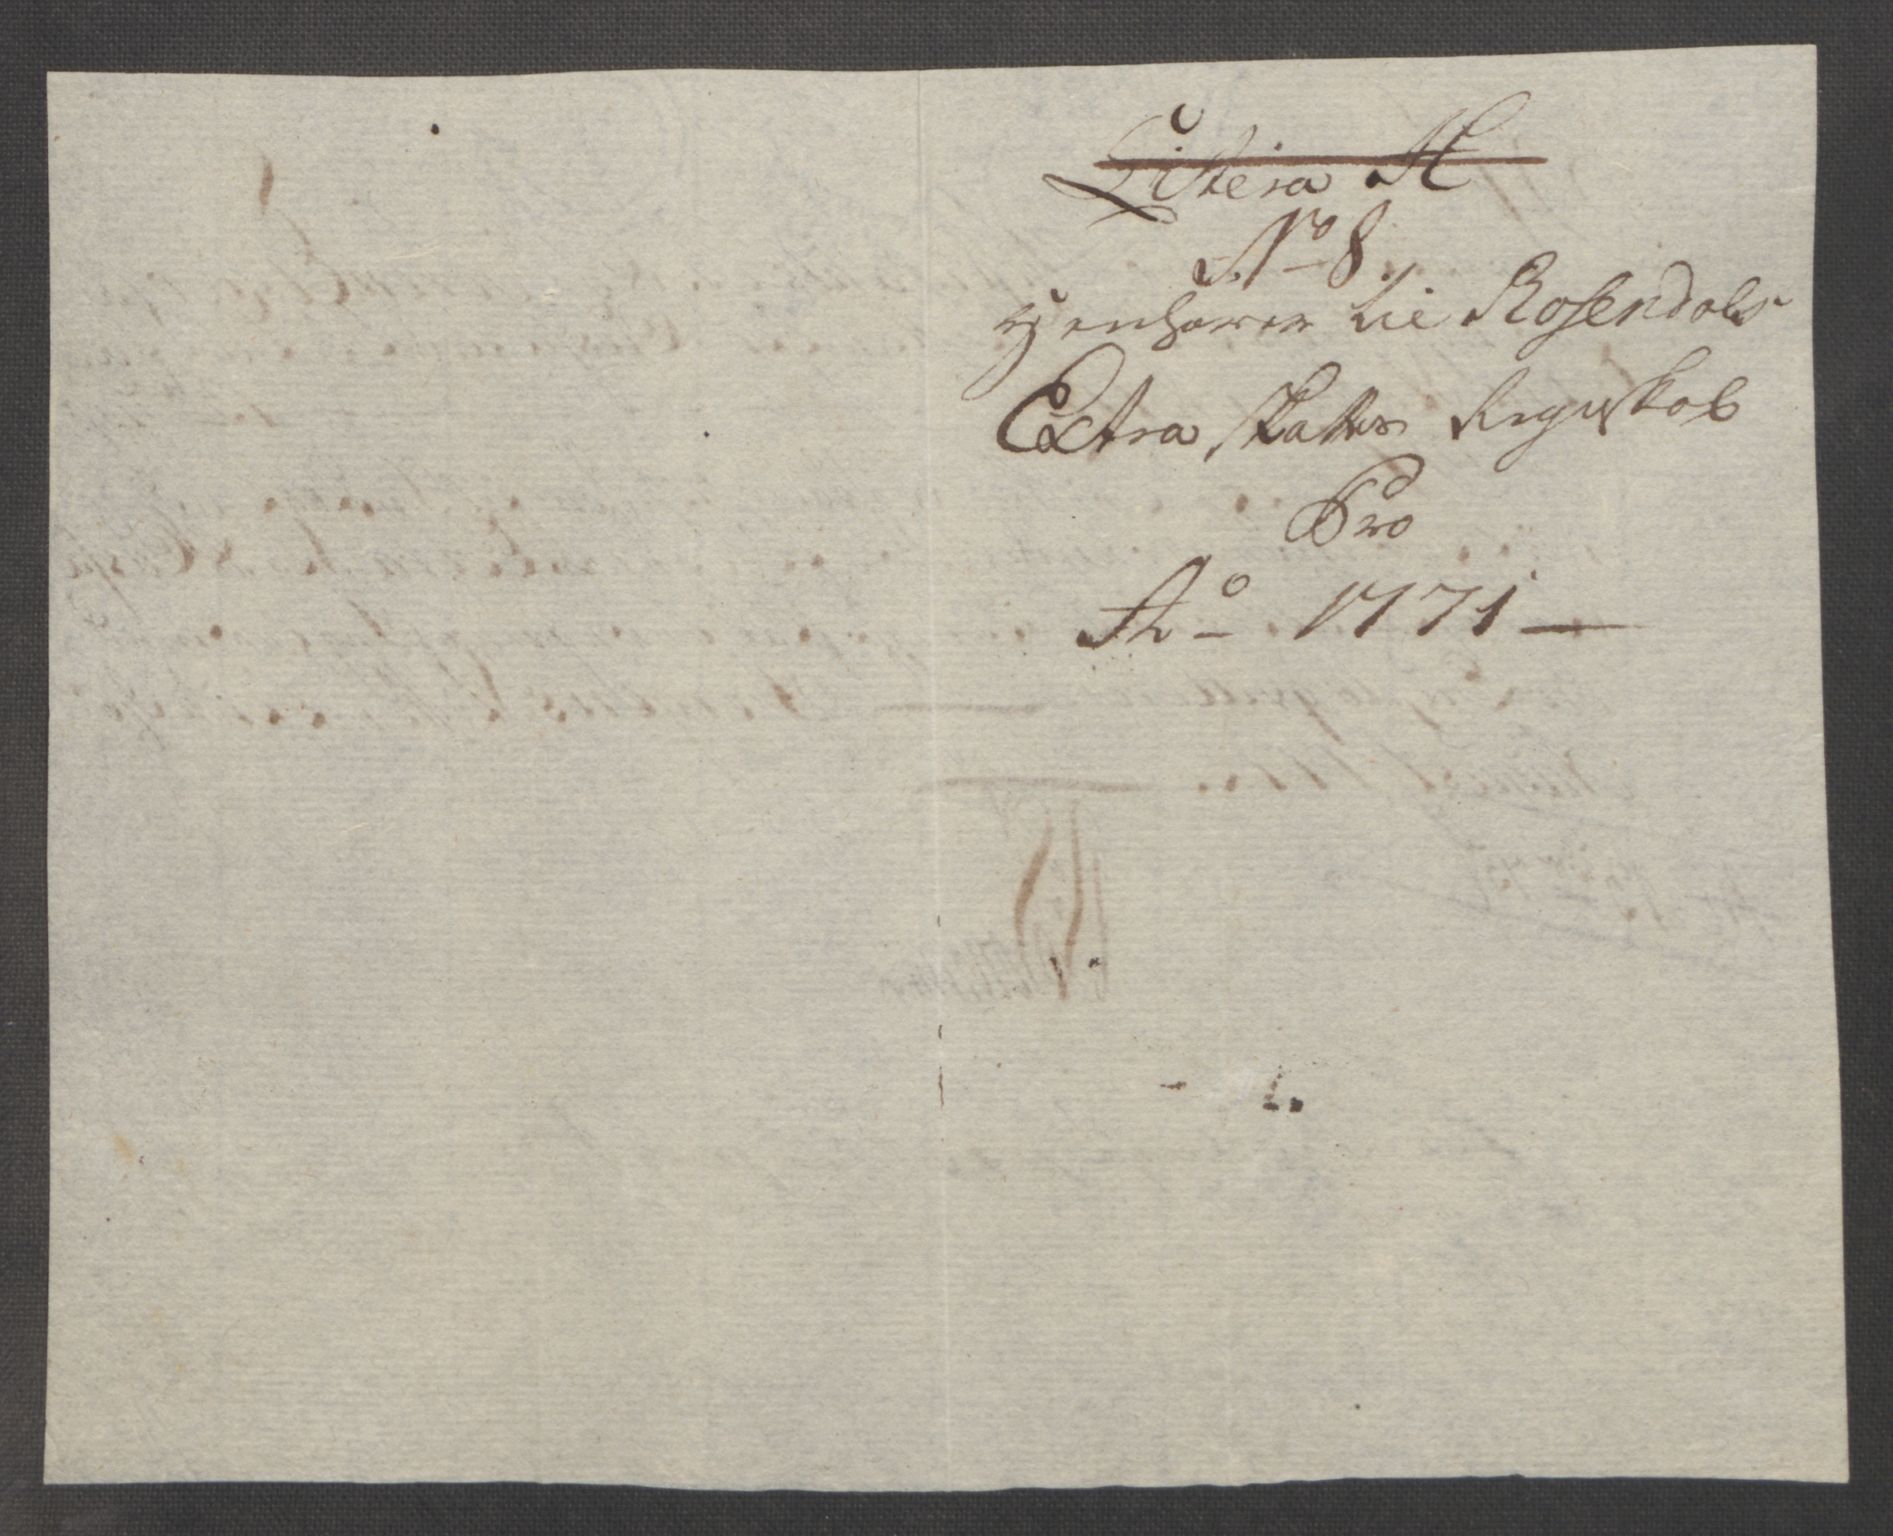 Litera H
No 8.
henhører til Rosendals
Extra Skattes Regnskab
Pro
Ao 1771